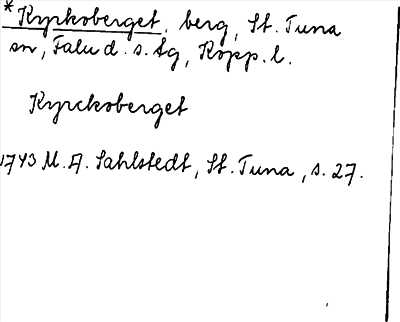 *Kyrkoberget, berg, St. Tuna
sn, Falu d. s. tg, Kopp. l.
Kyrckoberget
1743 M. A. Sahlstedt, St. Tuna, s. 27.